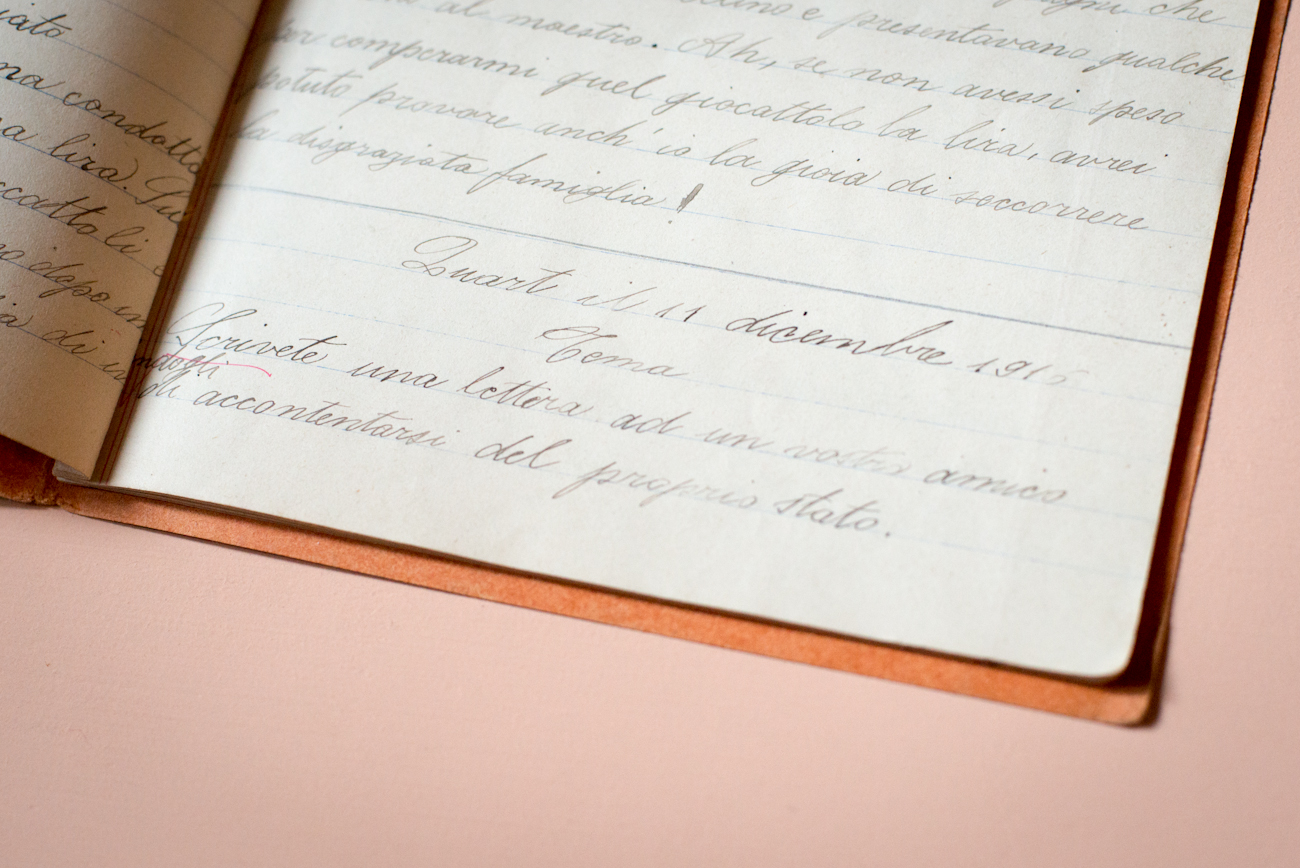 iato
ma condotto
a lira. Lui
ccattoli
dopo
ia di
che
e presentavano qualche
al maestro. Ah, se non avessi speso
per comperarmi quel giocattolo la lira, avrei
potuto provare anch'io la gioia di soccorrere
la disgraziata famiglia!
Quart il 11 dicembre 1915
Tema
Scrivete una lettera ad un vostro amico
accontentarsi del proprio stato.